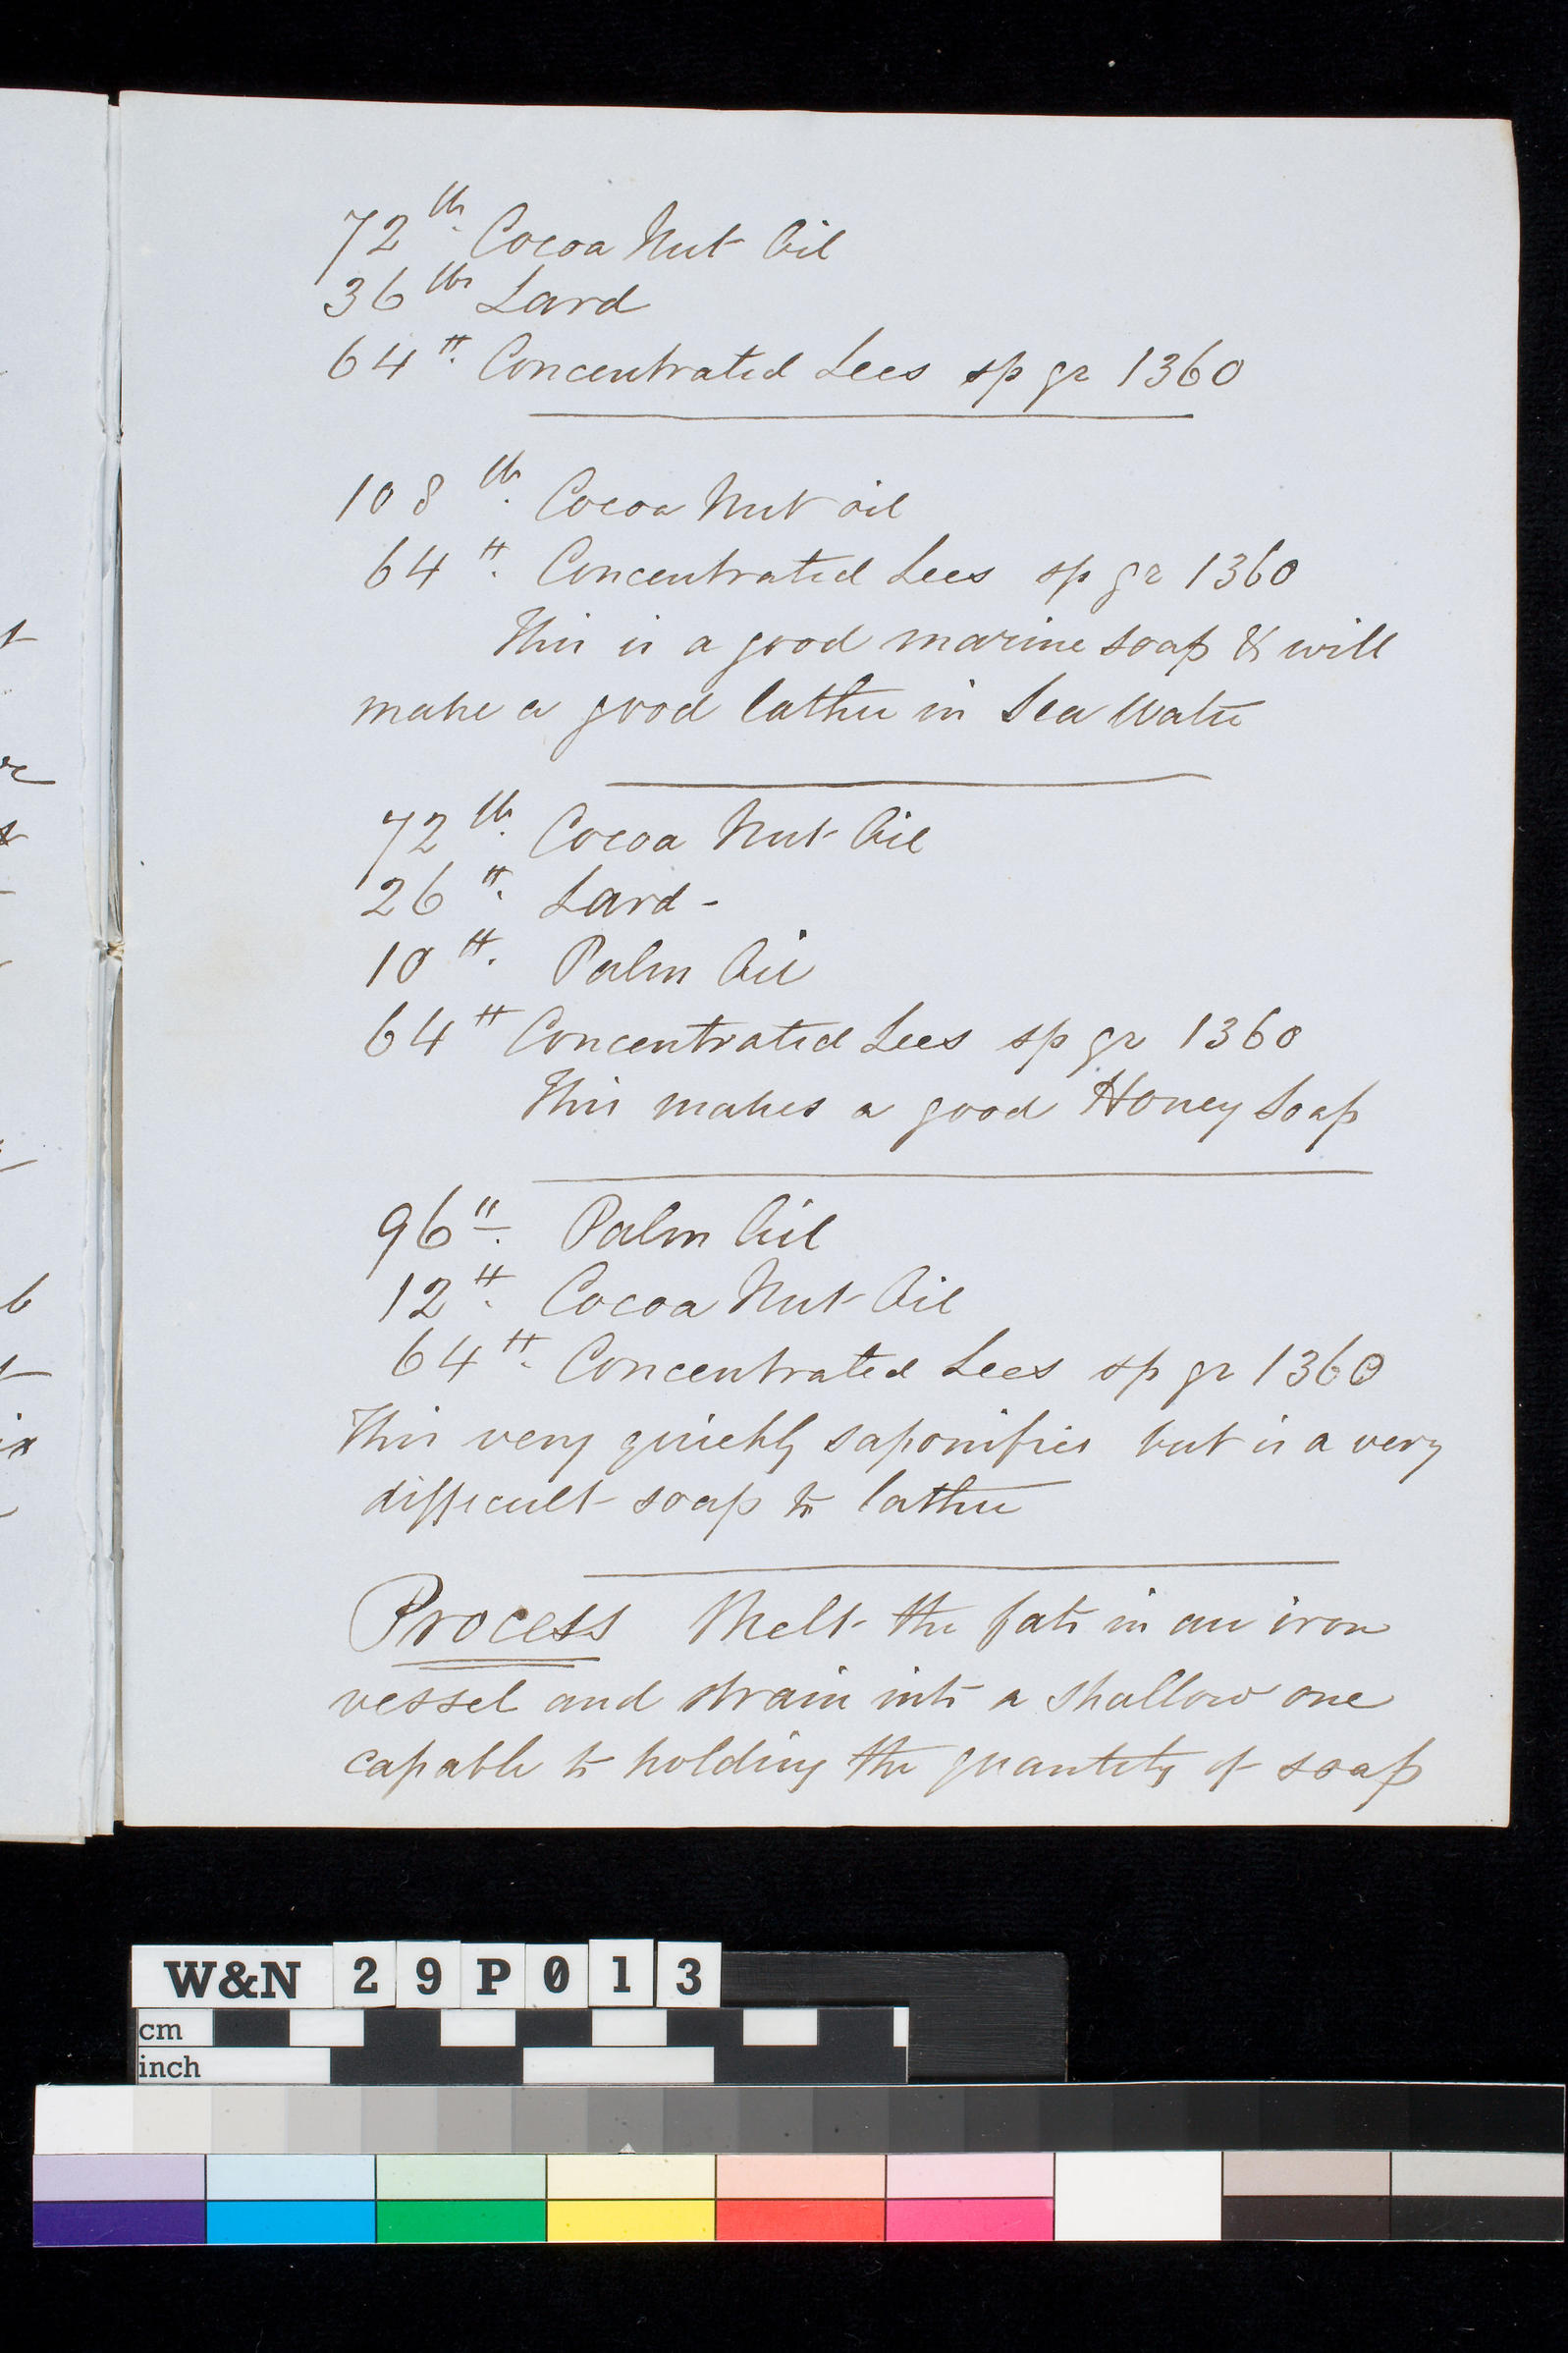 72 lb. Cocoa Nut Oil
36 lbs Lard
64 ". Concentrated Lees sp gr 1360
108 lb. Cocoa Nut oil
64 ". Concentrated Lees sp gr 1360
This is a good marine soap & will
make a good lather in Sea Water
72 lb. Cocoa Nut Oil
26 ". Lard -
10 ". Palm Oil
64 " Concentrated Lees sp gr 1360
This makes a good Honey Soap
96 ". Palm Oil
12 ". Cocoa Nut Oil
64 ". Concentrated Lees sp gr 1360
This very quickly saponifies but is a very
difficult soap to lather
Process Melt the fats in an iron
vessel and strain into a shallow one
capable to holding the quantity of soap
W&N 29P013
cm
inch